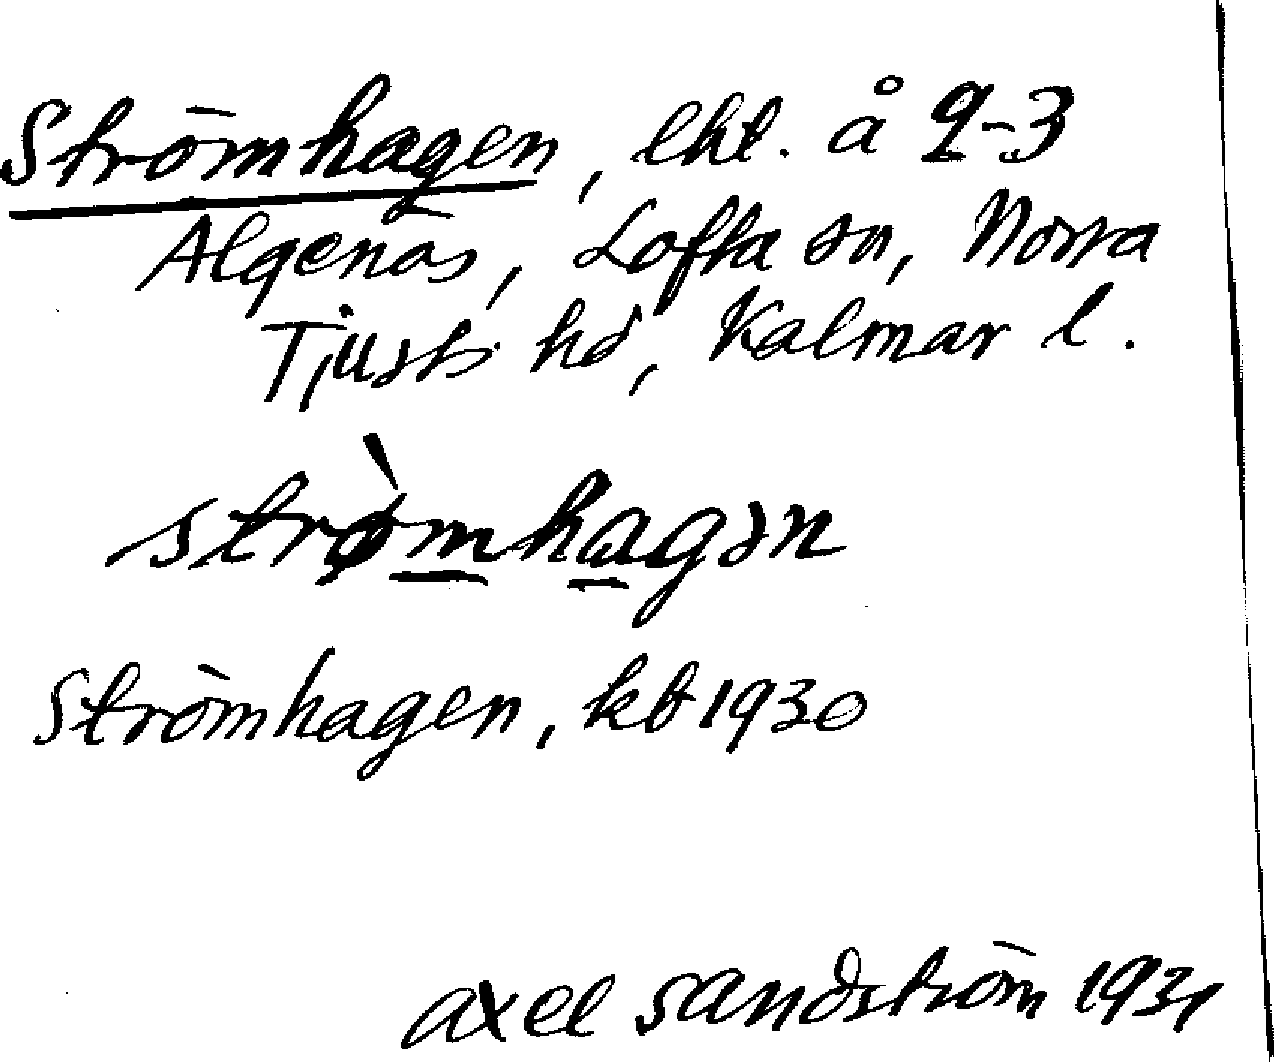 Strömhagen, lht. å 2-3
Algenäs, Lofta sn, Norra
Tjusts hd, Kalmar l.
strø̀mhagən
Strömhagen, kb 1930
Axel Sandström 1931